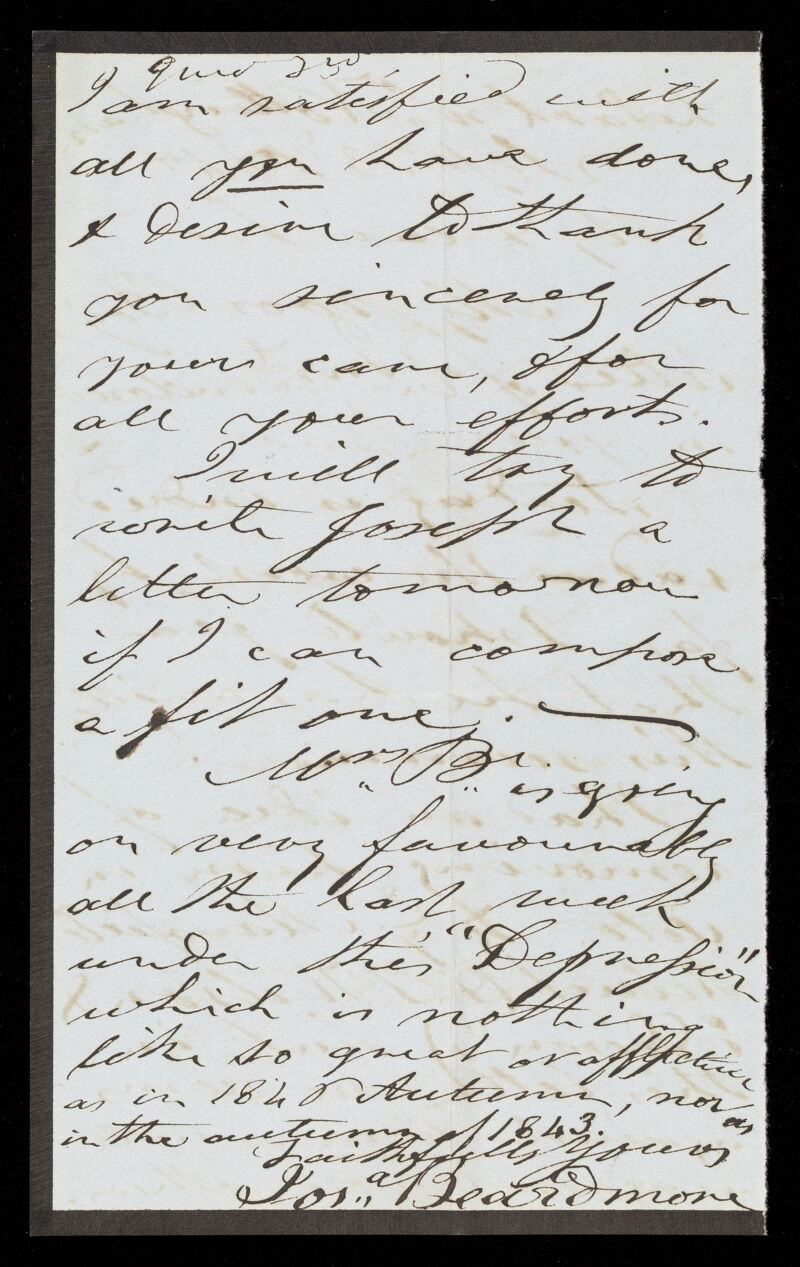 I am satisfied with
all you have done,
& desire to thank
you sincerely for
your care, & for
all your efforts.
I will try to
write Joseph a
letter tomorrow
if I can compose
a fit one. —
Mrs B. is going
on very favourably
all the last week
under this "Depression"
which is nothing
like so great or afflictive
as in 1840 Autumn, nor as
in the autumn of 1843.
Faithfully Yours
Josa Beardmore